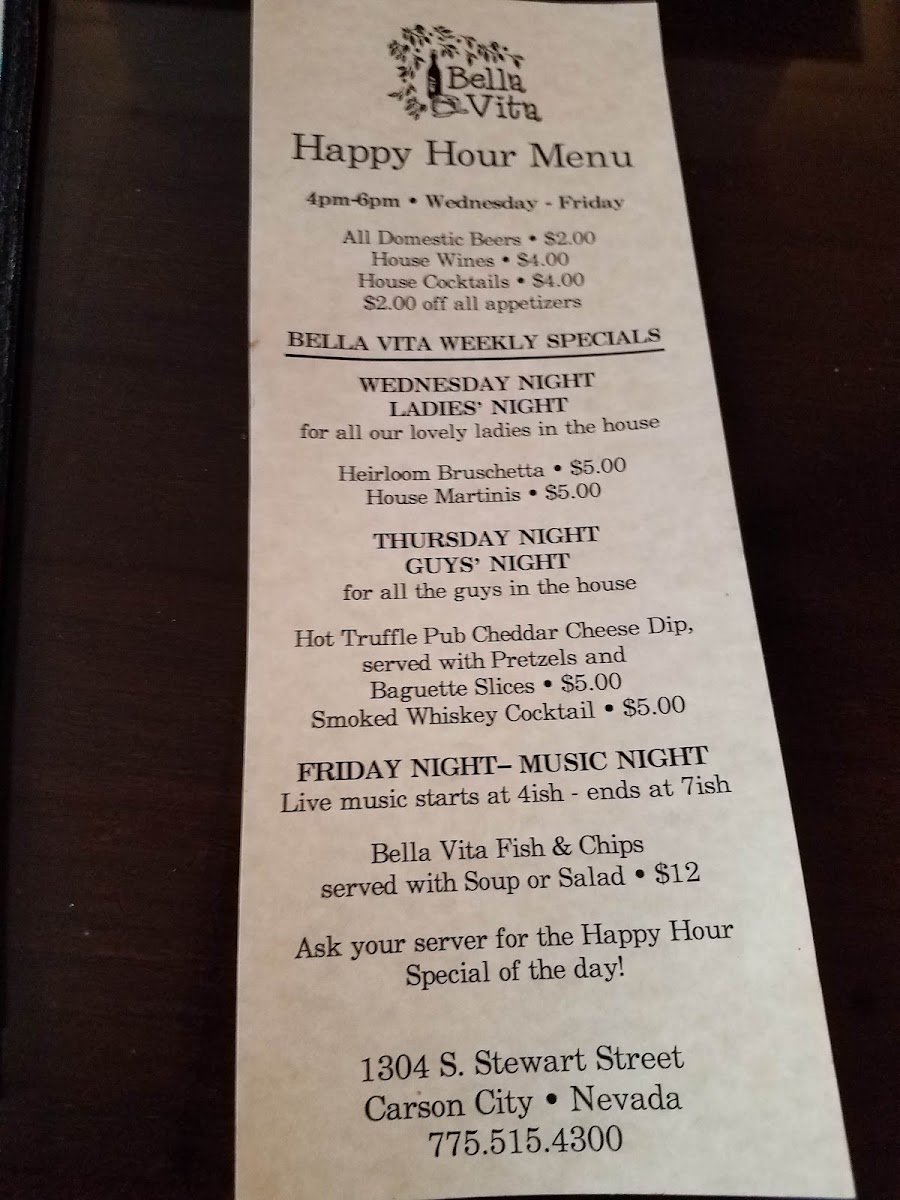 Bella
Vita
Happy Hour Menu
4pm-6pm • Wednesday - Friday
All Domestic Beers • $2.00
House Wines • $4.00
House Cocktails • $4.00
$2.00 off all appetizers
BELLA VITA WEEKLY SPECIALS
WEDNESDAY NIGHT
LADIES' NIGHT
for all our lovely ladies in the house
Heirloom Bruschetta • $5.00
House Martinis • $5.00
THURSDAY NIGHT
GUYS' NIGHT
for all the guys in the house
Hot Truffle Pub Cheddar Cheese Dip,
served with Pretzels and
Baguette Slices • $5.00
Smoked Whiskey Cocktail • $5.00
FRIDAY NIGHT– MUSIC NIGHT
Live music starts at 4ish - ends at 7ish
Bella Vita Fish & Chips
served with Soup or Salad • $12
Ask your server for the Happy Hour
Special of the day!
1304 S. Stewart Street
Carson City • Nevada
775.515.4300